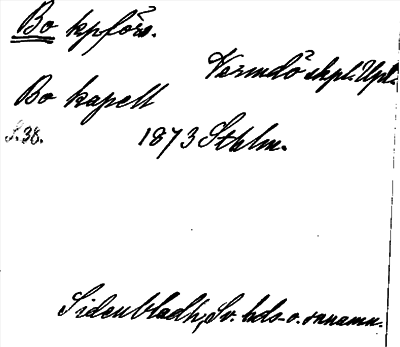 Bo kpförs.
Värmdö skpl. Upl.
Bo kapell
S. 38. 1873 Sthlm.
Sidenbladh, Sv. lds- o. snamn.